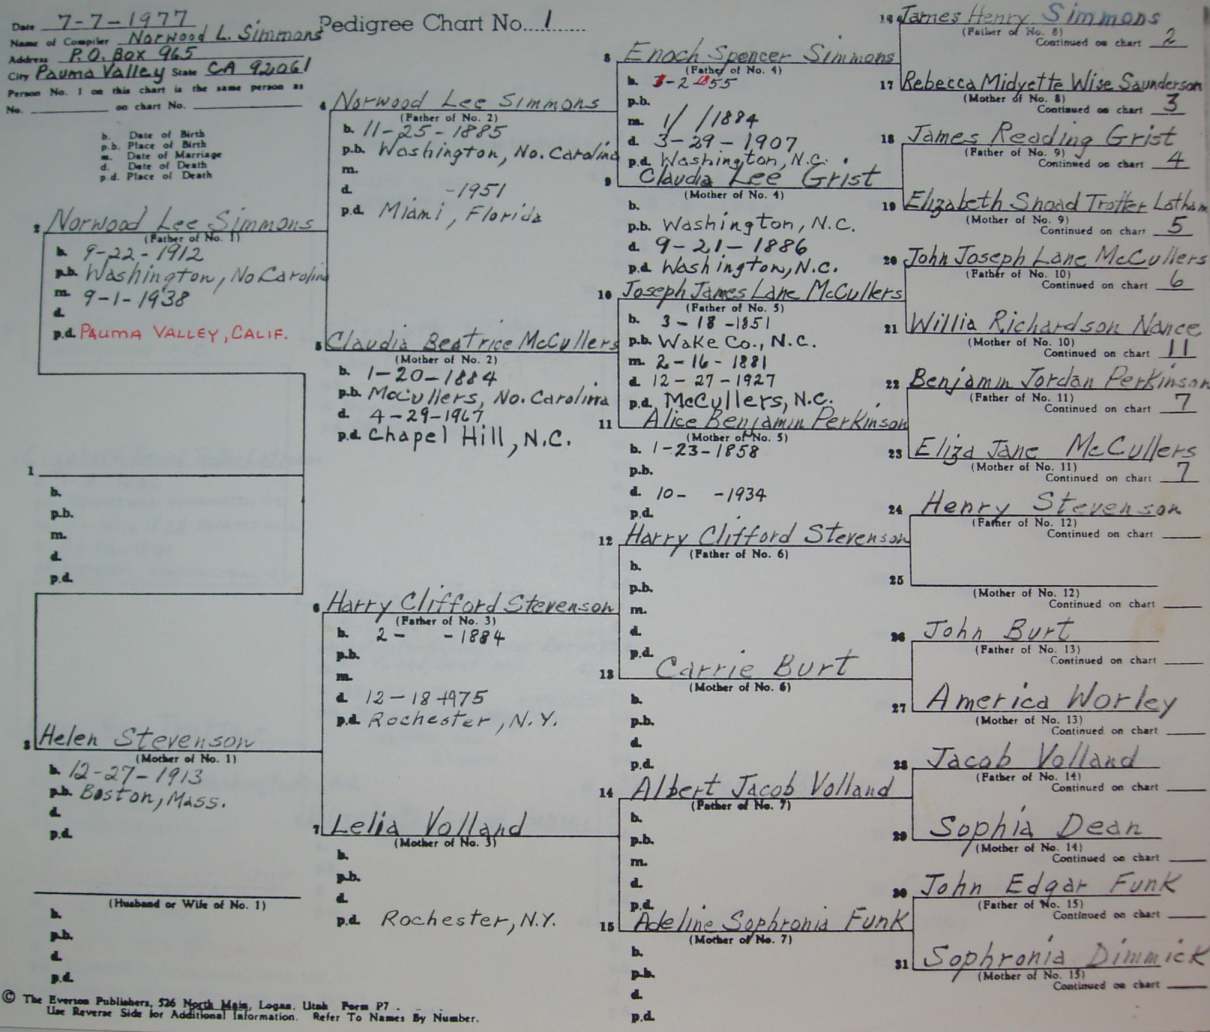 Date 7-7-1977
Name of Compiler Norwood L. Simmons
Address P.O. Box 965
City Pauma Valley State CA 92061
Person No. 1 on this chart is the same person as
No. ___ on chart No. ___
b. Date of Birth
p.b. Place of Birth
m. Date of Marriage
d. Date of Death
p.d. Place of Death
Pedigree Chart No. 1
2 Norwood Lee Simmons
(Father of No. 1)
b. 9-22-1912
p.b. Washington, No Carolina
m. 9-1-1938
d.
p.d. PAUMA VALLEY, CALIF.
1
b.
p.b.
m.
d.
p.d.
3 Helen Stevenson
(Mother of No. 1)
b. 12-27-1913
p.b. Boston, Mass.
d.
p.d.
(Husband or Wife of No. 1)
b.
p.b.
d.
p.d.
4 Norwood Lee Simmons
(Father of No. 2)
b. 11-25-1885
p.b. Washington, No. Carolina
m.
d. -1951
p.d. Miami, Florida
5 Claudia Beatrice McCullers
(Mother of No. 2)
b. 1-20-1884
p.b. McCullers, No. Carolina
d. 4-29-1967
p.d. Chapel Hill, N.C.
6 Harry Clifford Stevenson
(Father of No. 3)
b. 2- -1884
p.b.
m.
d. 12-18-1975
p.d. Rochester, N.Y.
7 Lelia Volland
(Mother of No. 3)
b.
p.b.
d.
p.d. Rochester, N.Y.
8 Enoch Spencer Simmons
(Father of No. 4)
b. -2-1855
p.b.
m. 1/ /1884
d. 3-29-1907
p.d. Washington, N.C.
9 Claudia Lee Grist
(Mother of No. 4)
b.
p.b. Washington, N.C.
d. 9-21-1886
p.d. Washington, N.C.
10 Joseph James Lane McCullers
(Father of No. 5)
b. 3-18-1851
p.b. Wake Co., N.C.
m. 2-16-1881
d. 12-27-1927
p.d. McCullers, N.C.
11 Alice Benjamin Perkinson
(Mother of No. 5)
b. 1-23-1858
p.b.
d. 10- -1934
p.d.
12 Harry Clifford Stevenson
(Father of No. 6)
b.
p.b.
m.
d.
p.d.
13 Carrie Burt
(Mother of No. 6)
b.
p.b.
d.
p.d.
14 Albert Jacob Volland
(Father of No. 7)
b.
p.b.
m.
d.
p.d.
15 Adeline Sophronia Funk
(Mother of No. 7)
b.
p.b.
d.
p.d.
16 James Henry Simmons
(Father of No. 8)
Continued on chart 2
17 Rebecca Midyette Wise Saunderson
(Mother of No. 8)
Continued on chart 3
18 James Reading Grist
(Father of No. 9)
Continued on chart 4
19 Elizabeth Snoad Trotter Latham
(Mother of No. 9)
Continued on chart 5
20 John Joseph Lane McCullers
(Father of No. 10)
Continued on chart 6
21 Willia Richardson Nance
(Mother of No. 10)
Continued on chart 11
22 Benjamin Jordan Perkinson
(Father of No. 11)
Continued on chart 7
23 Eliza Jane McCullers
(Mother of No. 11)
Continued on chart 7
24 Henry Stevenson
(Father of No. 12)
Continued on chart ___
25
(Mother of No. 12)
Continued on chart ___
26 John Burt
(Father of No. 13)
Continued on chart ___
27 America Worley
(Mother of No. 13)
Continued on chart ___
28 Jacob Volland
(Father of No. 14)
Continued on chart ___
29 Sophia Dean
(Mother of No. 14)
Continued on chart ___
30 John Edgar Funk
(Father of No. 15)
Continued on chart ___
31 Sophronia Dimmick
(Mother of No. 15)
Continued on chart ___
© The Everton Publishers, 526 North Main, Logan, Utah Form P7
Use Reverse Side for Additional Information. Refer To Names By Number.